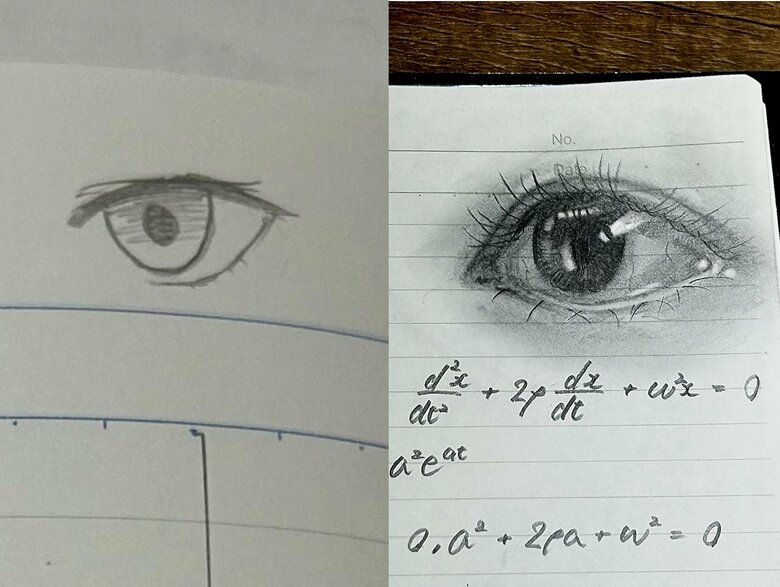 No.
Date
d²x/dt² + 2ρ dx/dt + ω²x = 0
a²e^at
0, a² + 2ρa + ω² = 0